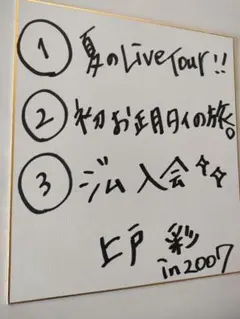 ① 夏のLive Tour!!
② 初お正月タイの旅。
③ ジム入会
上戸 彩
in 2007